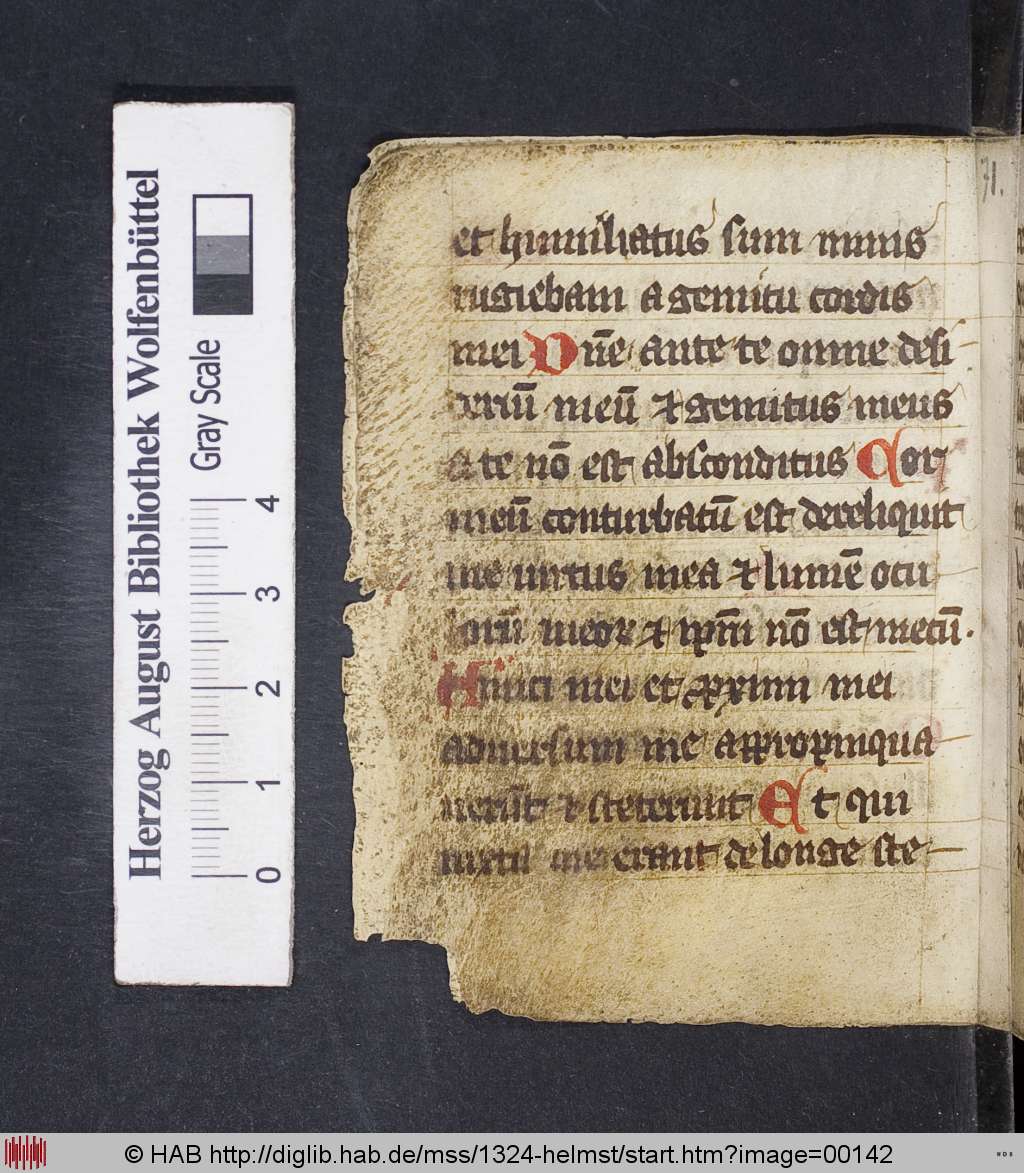 et humiliatus sum nimis
rugiebam a gemitu cordis
mei Dn̄e ante te omne desi
deriū meū ⁊ gemitus meus
a te nō est absconditus Cor
meū conturbatū est dereliquit
me uirtus mea ⁊ lumē ocu
lorū meoꝝ ⁊ ip̄m nō est mecū.
Amici mei et ꝓximi mei
aduersum me appropinqua
uerūt ⁊ steterunt Et qui
iuxta me erant de longe ste
71.
Herzog August Bibliothek Wolfenbüttel
Gray Scale
0 1 2 3 4
© HAB http://diglib.hab.de/mss/1324-helmst/start.htm?image=00142